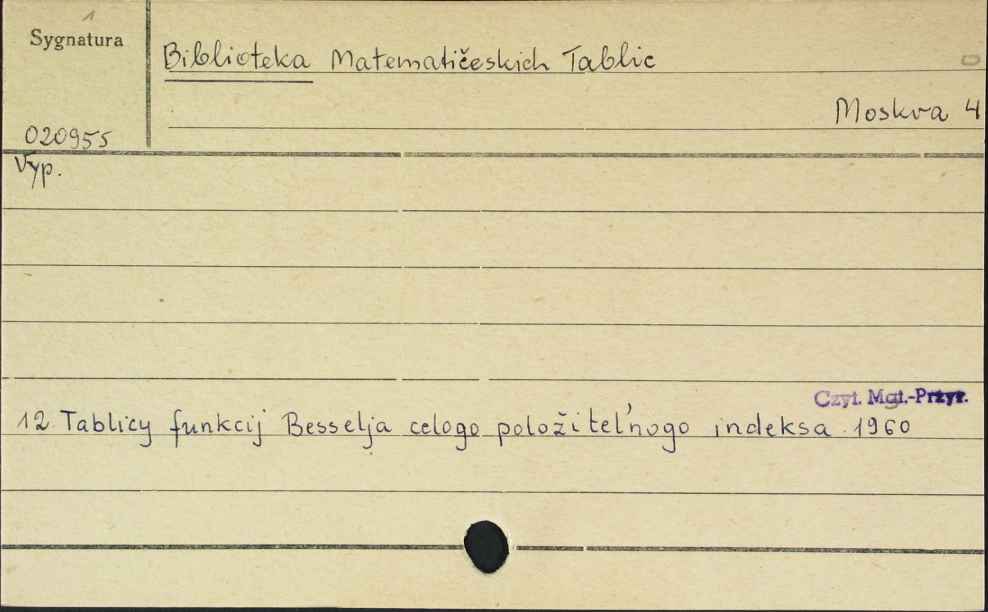 1
Sygnatura
Biblioteka Matematičeskich Tablic
Moskva 4
020955
Vyp.
Czyt. Mgt.-Przyr.
12 Tablicy funkcij Besselja celogo položitel'nogo indeksa 1960